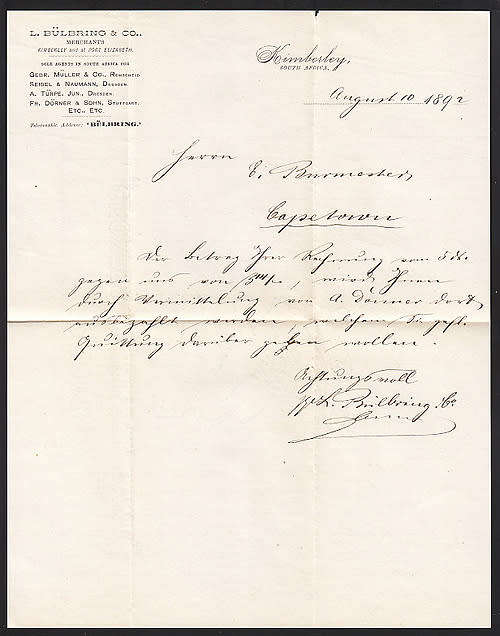 L. BÜLBRING & CO.,
MERCHANTS
KIMBERLEY and at PORT ELIZABETH.
SOLE AGENTS IN SOUTH AFRICA FOR
GEBR. MÜLLER & CO., REMSCHEID.
SEIDEL & NAUMANN, DRESDEN.
A. TÜRPE, JUN., DRESDEN.
FR. DÖRNER & SOHN, STUTTGART.
ETC., ETC.
Telegraphic Address: "BÜLBRING."
Kimberley,
SOUTH AFRICA.
August 10 1892
Herrn
E. Burmester,
Capetown
Der Betrag Ihrer Rechnung vom 5 ds.
gegen uns von, wird Ihnen
durch Vermittelung von A. Dörner dort
ausbezahlt werden, welchem Sie gefl.
Quittung darüber geben wollen.
Achtungsvoll
L. Bülbring & Co